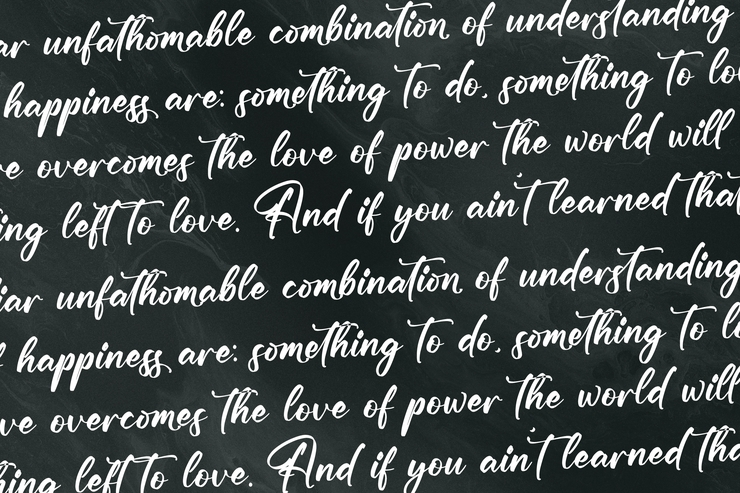 ar unfathomable combination of understanding
happiness are: something to do, something to lo
ve overcomes the love of power the world will
ing left to love. And if you ain't learned that
iar unfathomable combination of understanding
f happiness are: something to do, something to lo
ve overcomes the love of power the world will
hing left to love. And if you ain't learned tha